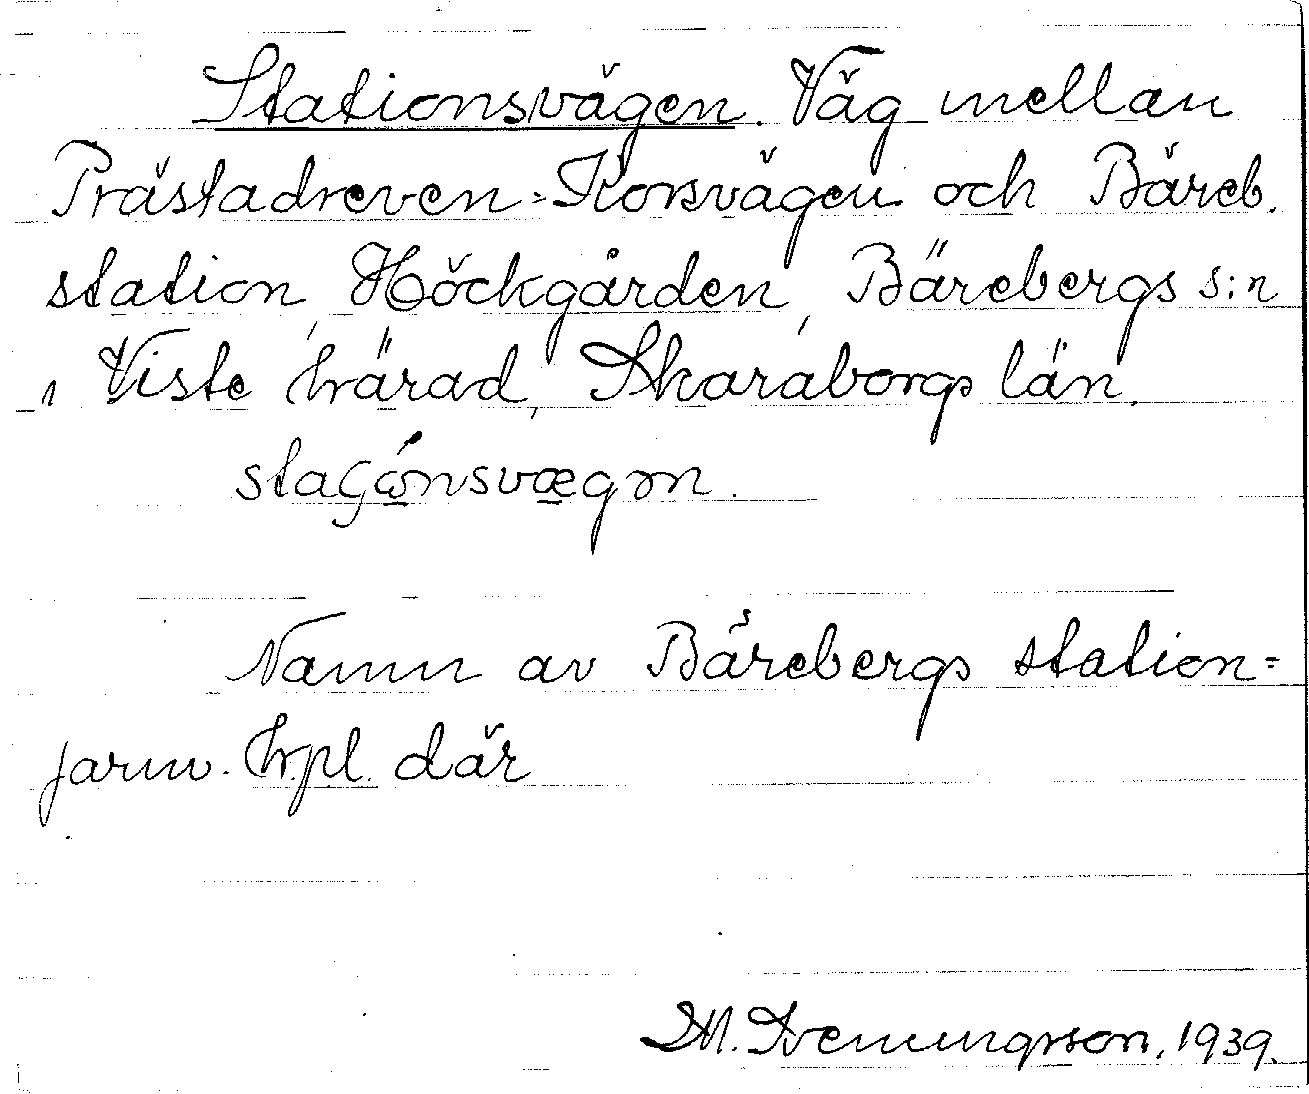 Stationsvägen. Väg mellan
Prästadreven-Korsvägen och Bäreb.
station, Höckgården, Bärebergs s:n
i Viste härad, Skaraborgs län.
staʃónsvægɷn.
Namn av Bärebergs station-
jarnv. hpl. där
1939.